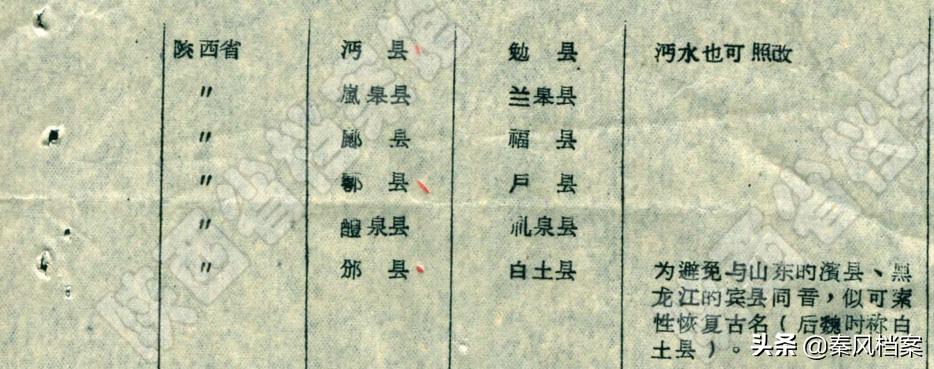 陕西省 沔县 勉县 沔水也可照改
〃 嵐皋县 兰皋县
〃 鄜县 福县
〃 鄠县 户县
〃 醴泉县 礼泉县
〃 邠县 白土县 为避免与山东的濱县、黑
龙江的宾县同音，似可索
性恢复古名（后魏时称白
土县）。
陕西省档案馆
陕西省档案
头条 @秦风档案